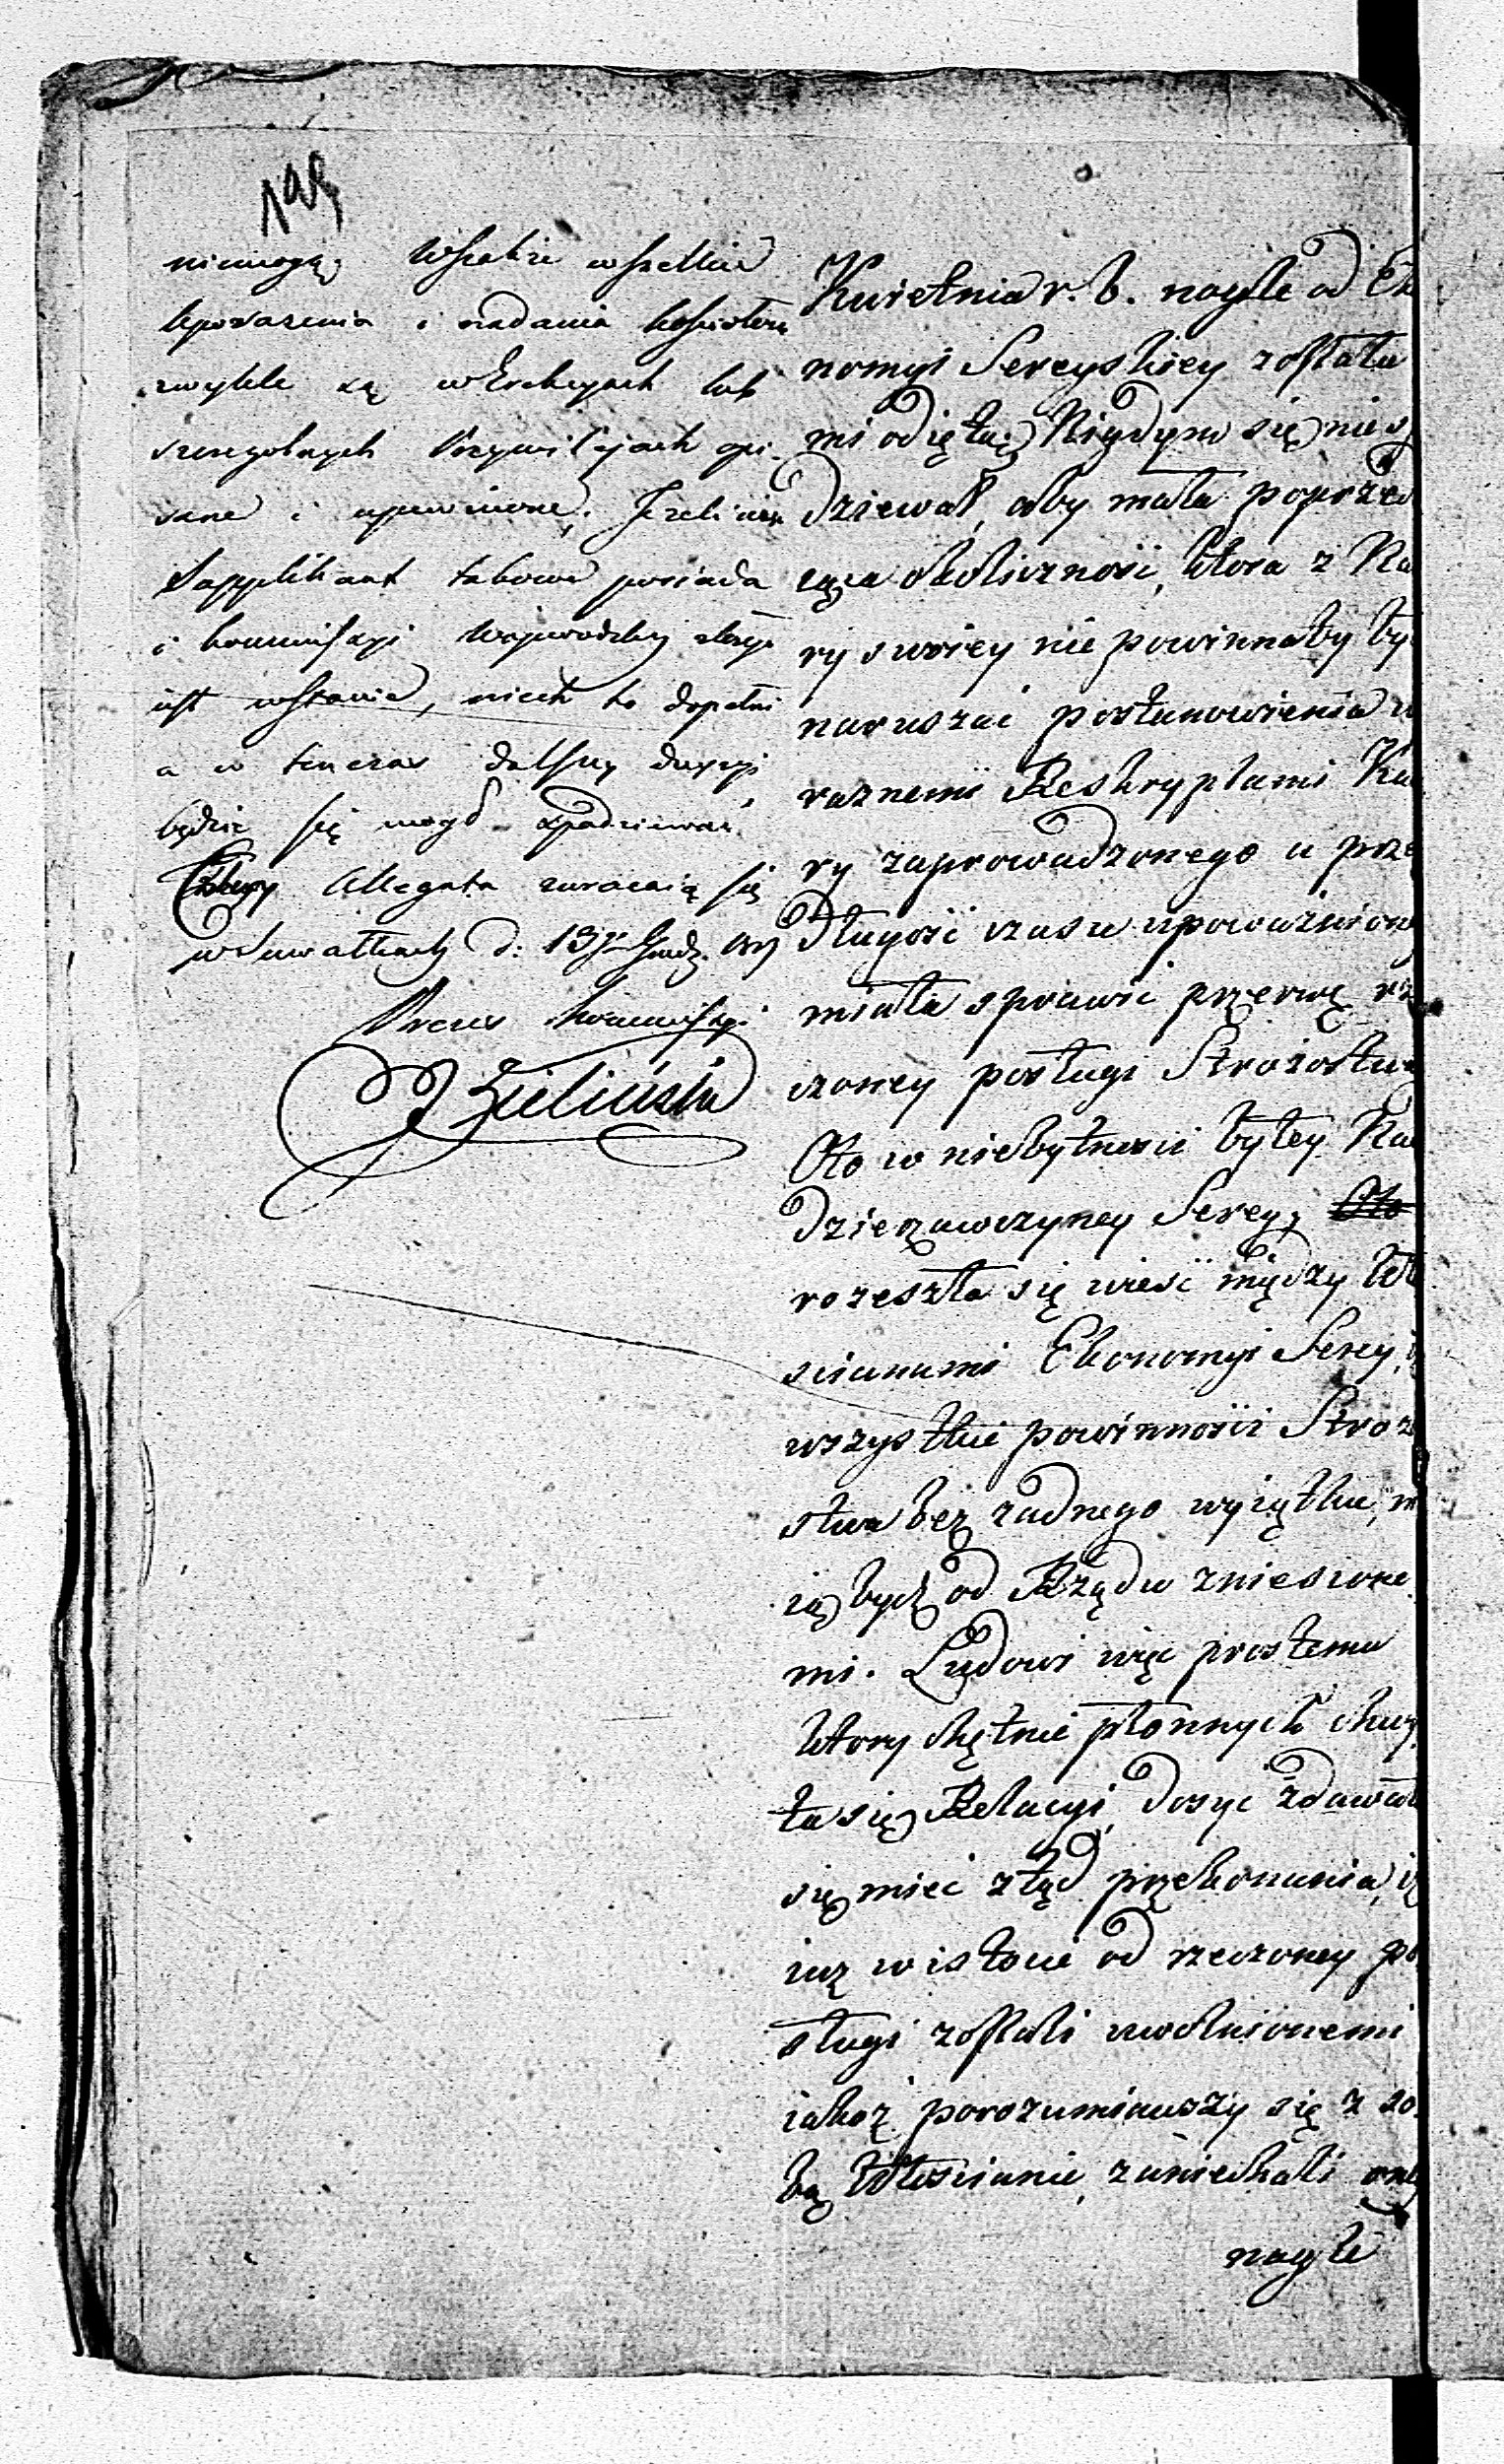 niemogą; Wszakże wszelkie
uposazenia i nadania kościołów
zwykle są w Erekcyach lub
szczegolnych Przywilejach opi-
sane i upewnione. Jeżeli więc
Supplikant takowe posiada
i kommissyi Wojewodzkiej złożyć
jest wstanie, niech to dopełni
a w ten czas dalszey decyzyi
będzie się mogł spodziewać.
Allegata zwracaią się
w Suwałkach d. 13
Prezes Kommissyi
Zieliński
Kwietnia r. b. nagle od Eko
nomyi Sereyskiey została
mi odięta; Nigdym się nie s
dziewał, aby mała poprzed
zaiąca okoliczność, ktora z Na
ry swoiey nie powinnaby by
naruszać postanowienia w
raznemi Reskryptami Ka
ry zaprowadzonego a prze
długość czasu upoważnione
miała sprawić przerwę rze
czoney posługi Strożostwa
Oto w niebytności byłey Na
dzierzawczyney Serey,
rozeszła się wieść między Wł
scianami Ekonomyi Serey, i
wszystkie powinności Stroż
stwa bez żadnego wyiątku, m
ią bydź od Rządu zniesione
mi. Ludowi więc prostemu
ktory chętnie płonnych chwy
ta się Relacyi, dosyć zdawał
się mieć ztąd przekonania, iż
iuż w istocie od rzeczoney po
sługi zostali uwolnionemi
iakoż porozumiawszy się z so
bą Włościanie, zaniechali oney
nagle